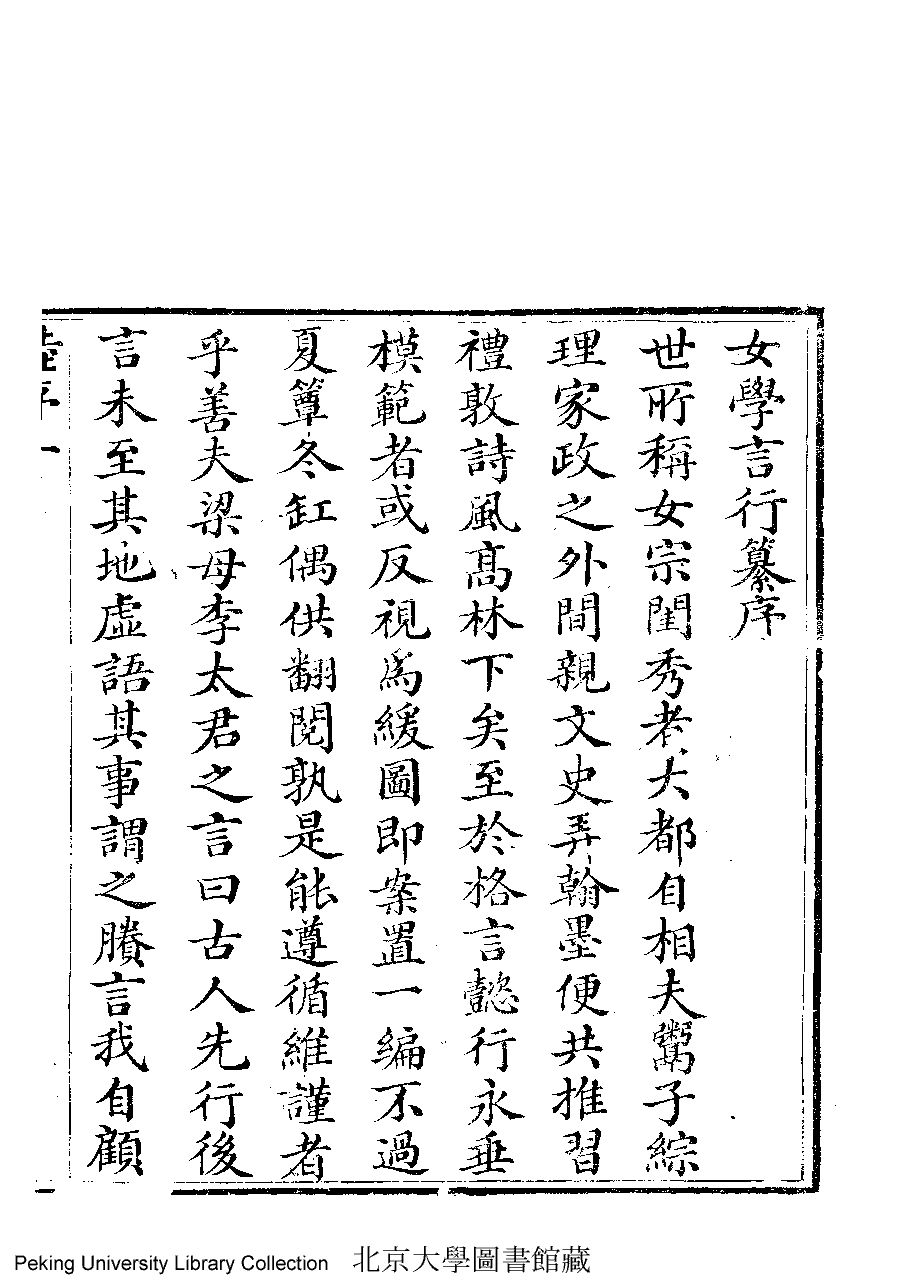 女學言行纂序
世所稱女宗閨秀者大都自相夫鬻子綜
理家政之外間親文史弄翰墨便共推習
禮敦詩風髙林下矣至於格言懿行永垂
模範者或反視爲緩圖即案置一編不過
夏簟冬缸偶供翻閱孰是能遵循維謹者
乎善夫梁母李太君之言曰古人先行後
言未至其地虛語其事謂之賸言我自顧
Peking University Library Collection 北京大學圖書館藏